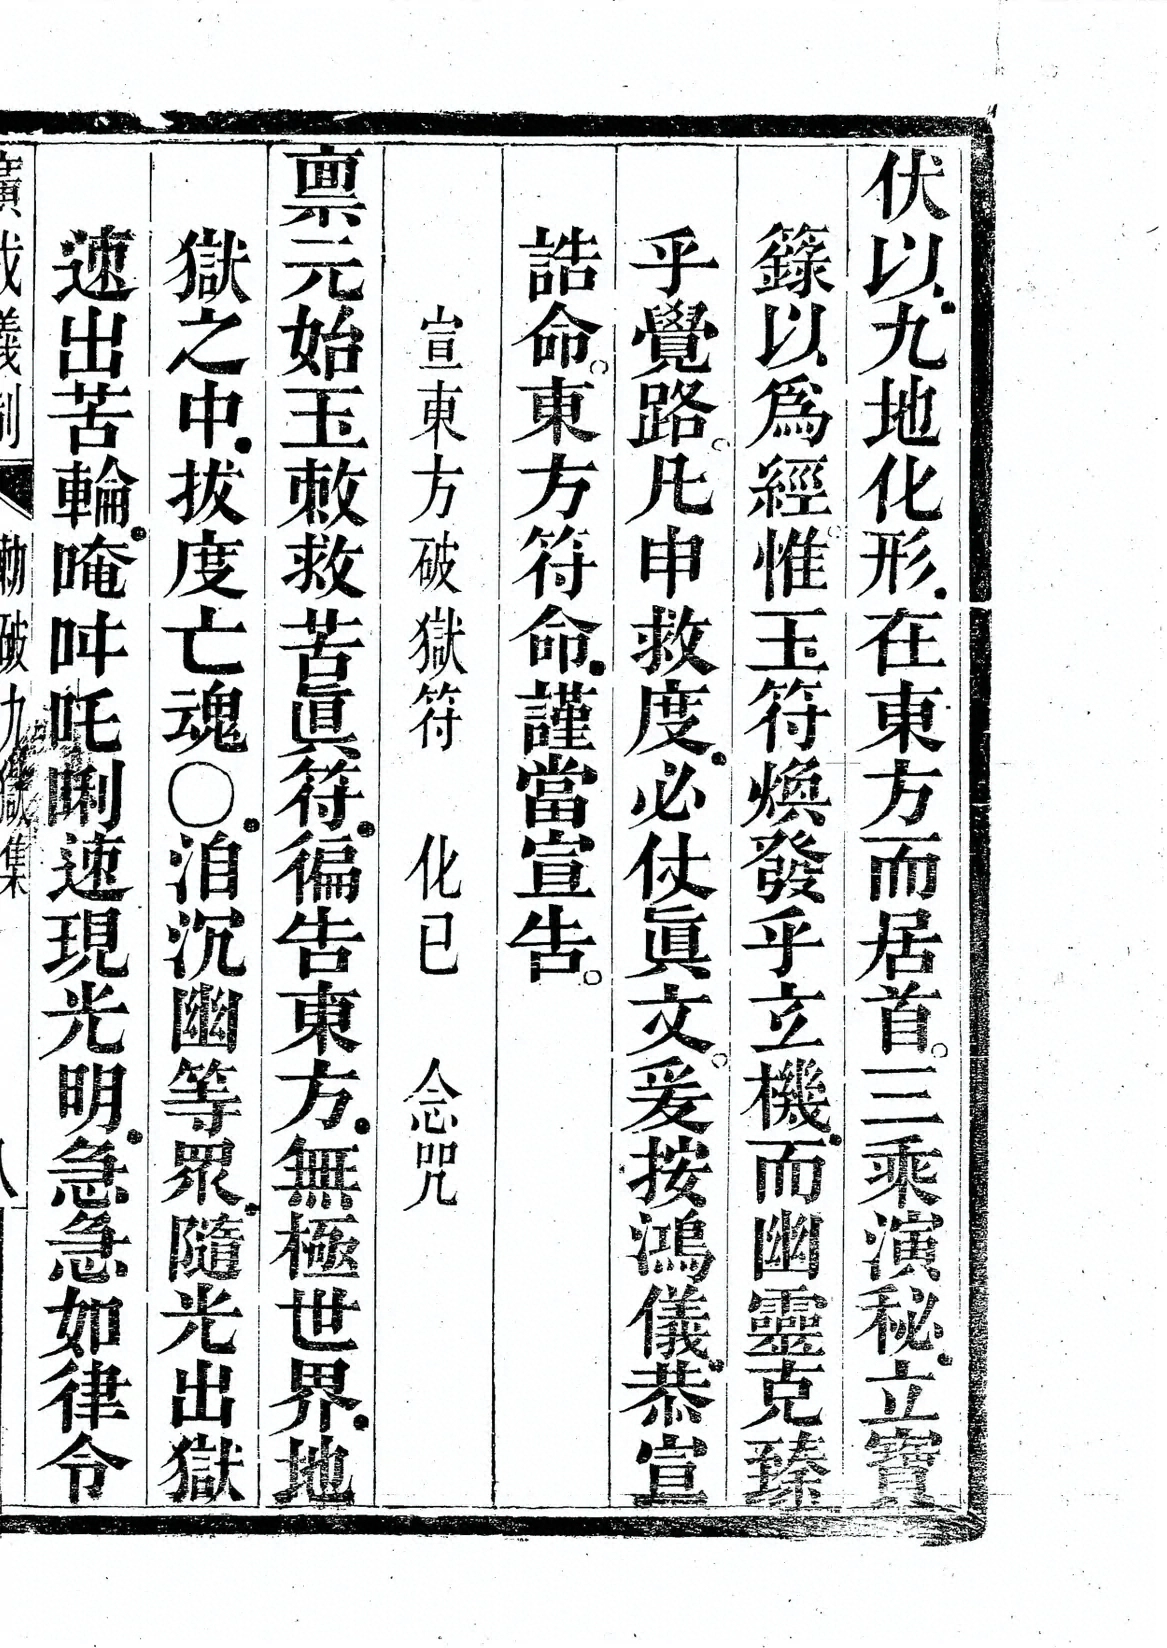 伏以九地化形在東方而居首三乘演秘立寶
籙以為經惟玉符煥發乎立機而幽靈克臻
乎覺路凡申救度必仗眞文爰按鴻儀恭宣
誥命東方符命謹當宣告
宣東方破獄符 化已 念咒
稟元始玉敕救苦眞符徧告東方無極世界地
獄之中拔度亡魂〇洎沉幽等眾隨光出獄
速出苦輪唵吽吒唎速現光明急急如律令
廣成儀制 勅破九獄集 八